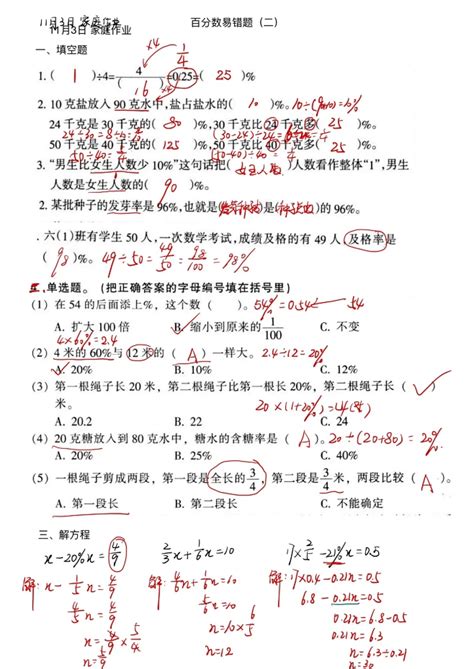 11月3日 家庭作业
11月3日 家庭作业
百分数易错题（二）
一、填空题
×4
1/4
1.( 1 )÷4=4/( 16 )=0.25=( 25 )%
×4
2. 10 克盐放入 90 克水中,盐占盐水的( 10 )%。10÷(90+10)=10%
24 千克是 30 千克的( 80 )%,30 千克比 24 千克多( 25 )%。
24÷30=8÷10=4/5 (30-24)÷24=6÷24=1/4
50 千克是 40 千克的( 125 )%,50 千克比 40 千克多( 25 )%。
50÷40=5/4 (50-40)÷40=1/4
3. “男生比女生人数少 10%”这句话把( 女生人数 )人数看作整体“1”,男生
人数是女生人数的( 90 )%。
2. 某批种子的发芽率是 96%,也就是( )是( )的 96%。
. 六(1)班有学生 50 人,一次数学考试,成绩及格的有 49 人,及格率是
( 98 )%。 49÷50=49/50=98/100=98%
单选题。（把正确答案的字母编号填在括号里）
(1) 在 54 的后面添上%，这个数（ ）。 54%=0.54 54
A. 扩大 100 倍 B. 缩小到原来的 1/100 C. 不变
4×60%=2.4
(2) 4 米的 60%与 12 米的（ A ）一样大。 2.4÷12=20%
A. 20% B. 10% C. 12%
(3) 第一根绳子长 20 米，第二根绳子比第一根长 20%，第二根绳子长（ ）
米。 20×(1+20%)=
A. 20.2 B. 22 C. 24
(4) 20 克糖放入到 80 克水中，糖水的含糖率是（ A ）。20÷(20+80)=20%
A. 20% B. 25% C. 40%
(5) 一根绳子剪成两段，第一段是全长的 3/4，第二段是 3/4 米，两段比较（ A ）。
A. 第一段长 B. 第二段长 C. 不能确定
三、解方程
x-20%x=4/9 2/3x+1/6x=10 17×2/5-21%x=0.5
解: x-1/5x=4/9 解: 4/6x+1/6x=10 解: 17×0.4-0.21x=0.5
4/5x=4/9 5/6x=10 6.8-0.21x=0.5
x=4/9×5/4 x=10×6/5 0.21x=6.8-0.5
x=5/9 x=12 0.21x=6.3
x=6.3÷0.21
x=30